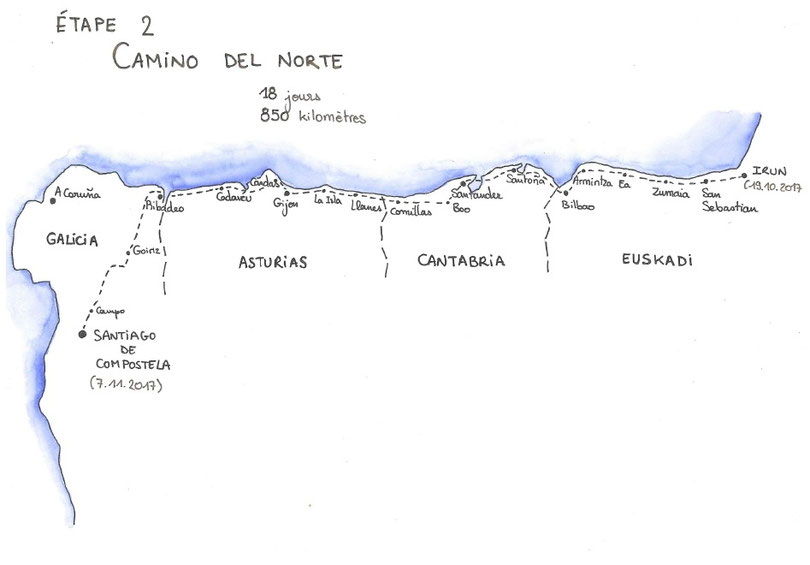 ÉTAPE 2
CAMINO DEL NORTE
18 jours
850 kilomètres
IRUN
(19.10.2017
San
Sebastian
Zumaia
Ea
Armintza
Bilbao
Santoña
Santander
Boo
Comillas
Llanes
La Isla
Gijon
Candas
Cadaveu
Ribadeo
A Coruña
Goiriz
Campo
GALICIA
ASTURIAS
CANTABRIA
EUSKADI
SANTIAGO
DE
COMPOSTELA
(7.11.2017)